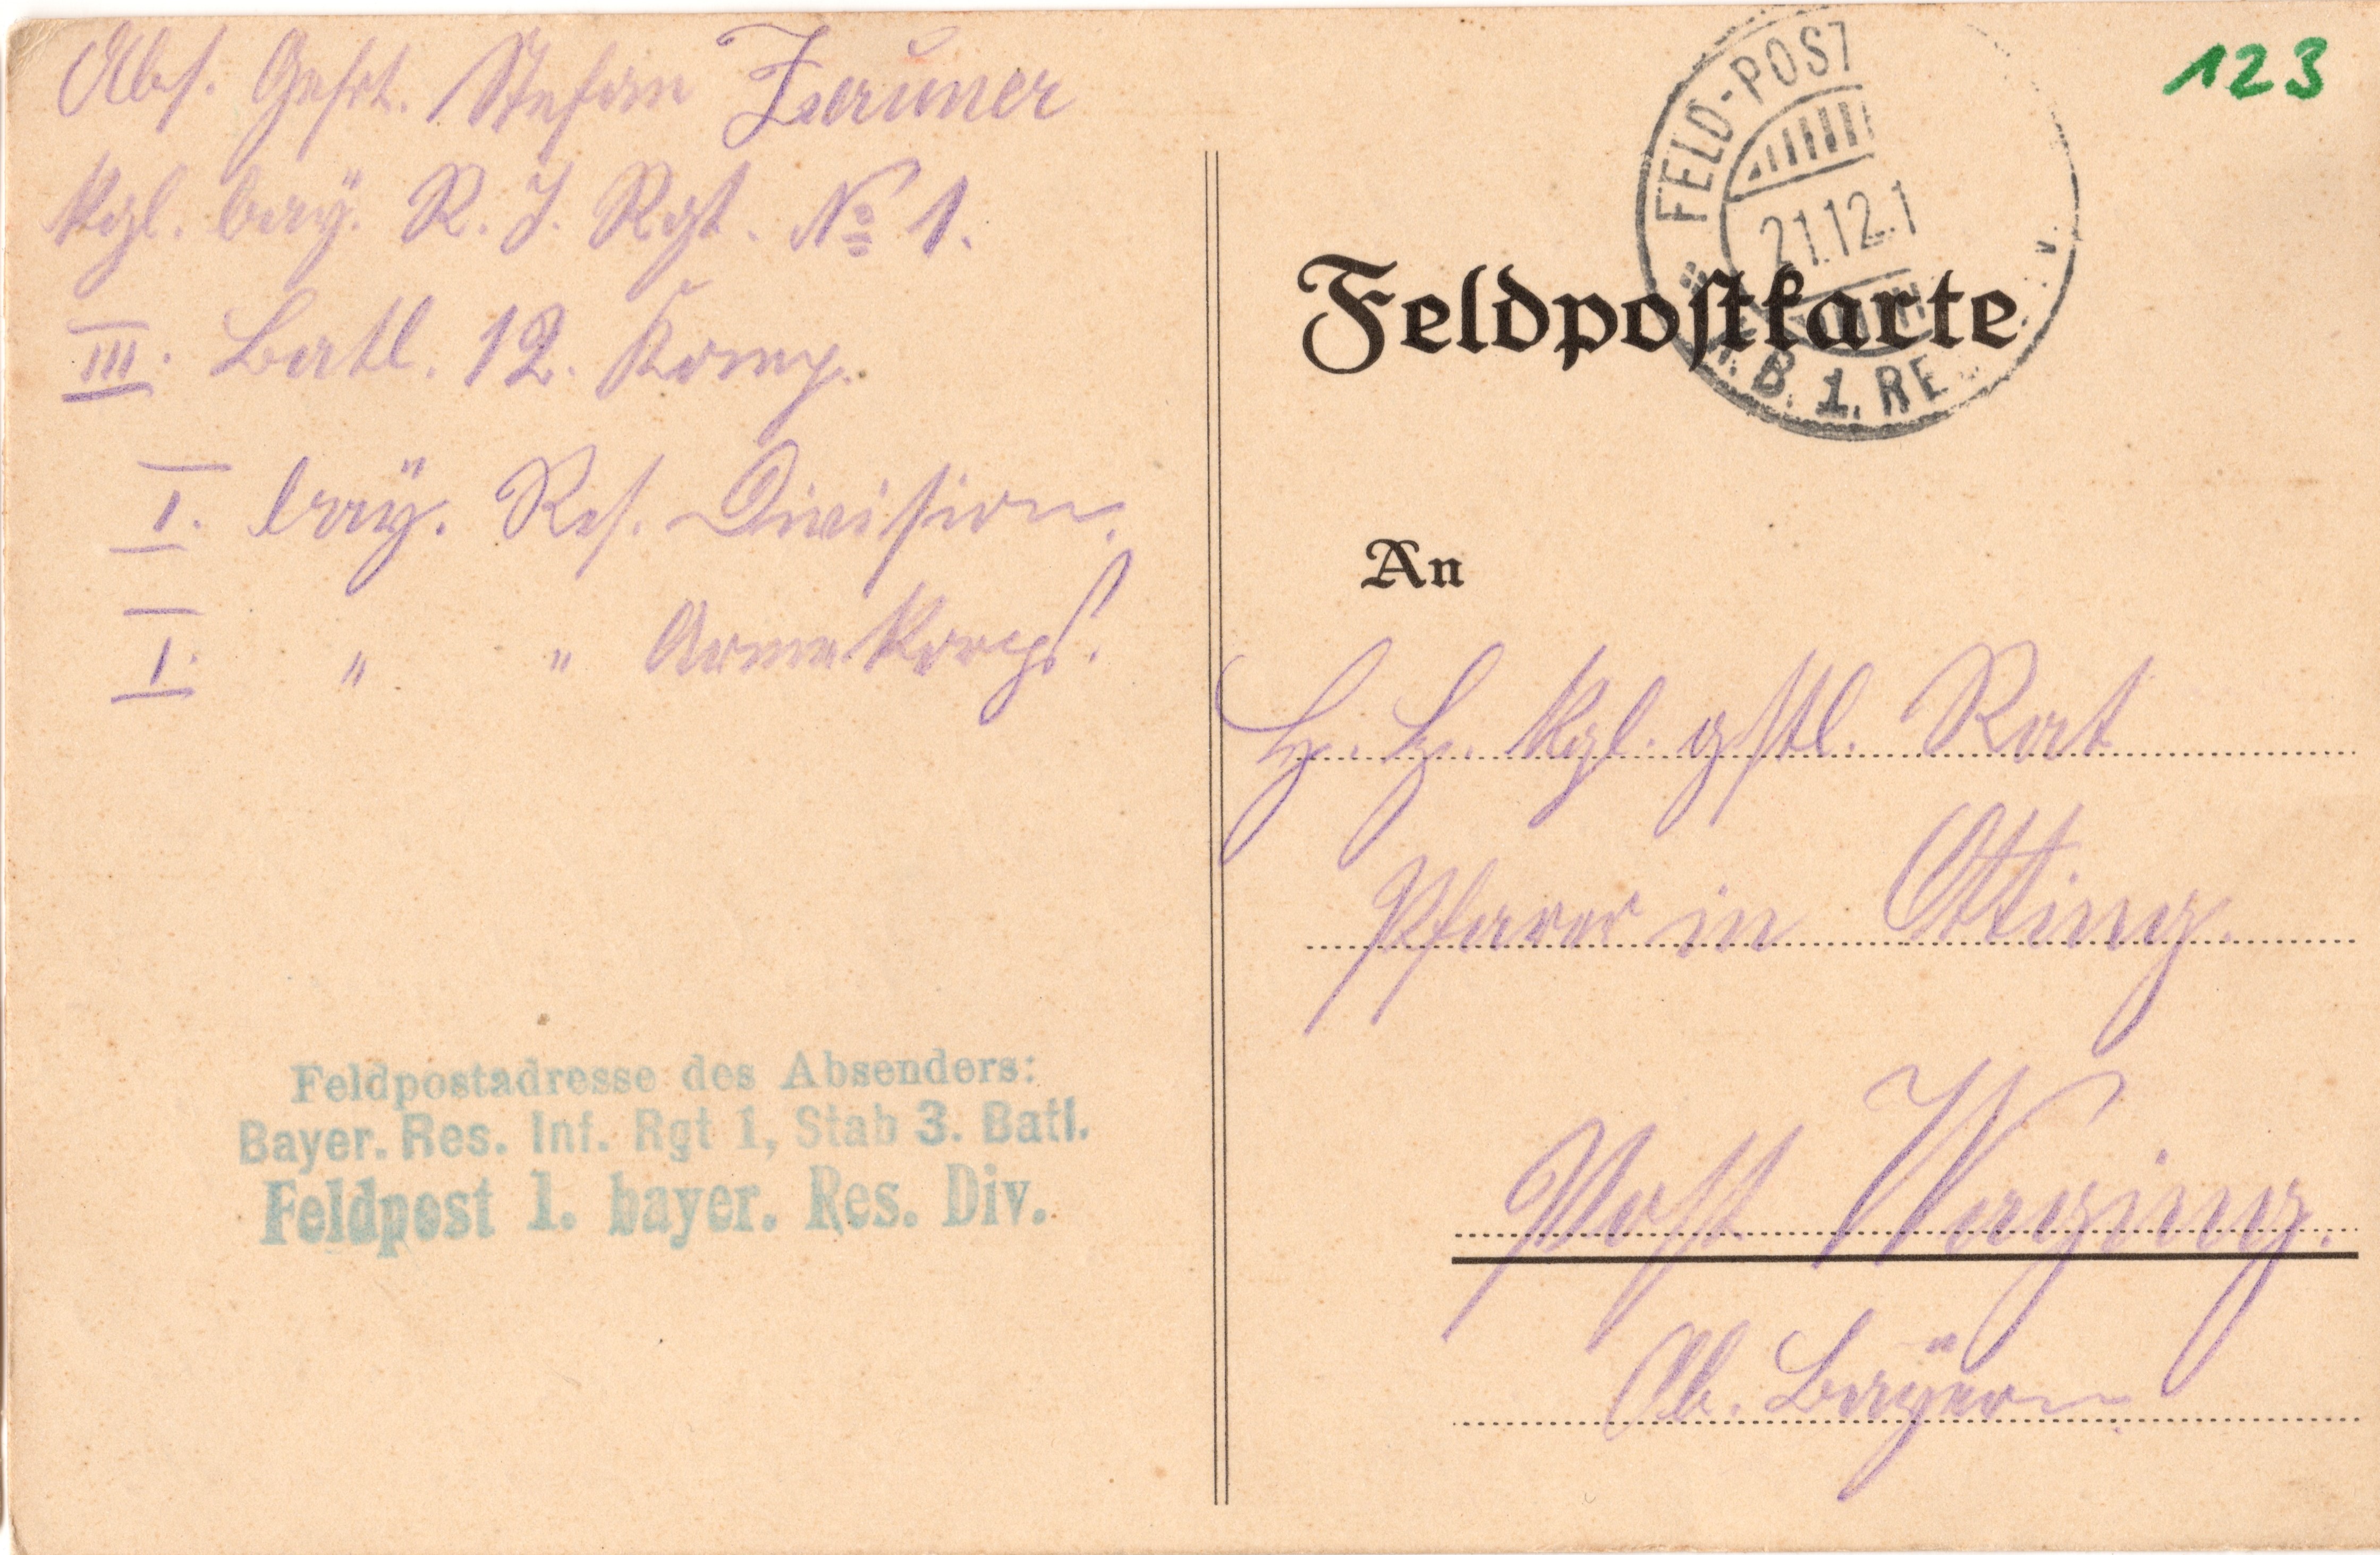 Abs. Gefrt. Stefan Zauner
kgl. bay. R. I. Rgt. No 1.
III. Batl. 12. Komp.
I. bay. Res. Division.
I. " " Armeekorps.
Feldpostadresse des Absenders:
Bayer. Res. Inf. Rgt 1, Stab 3. Batl.
Feldpost 1. bayer. Res. Div.
123
FELD-POST
21.12.1
B. 1. RE
Feldpostkarte
An
H. H. kgl. gstl. Rat
Pfarer in Otting.
Post Waging.
Ob. Bayern